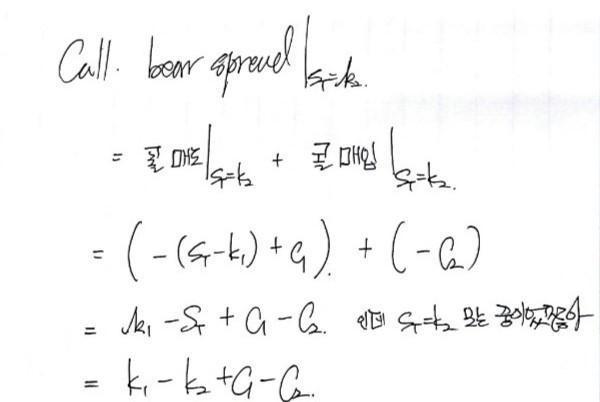 Call. bear spread |S_T=k₂.
= 콜매도|S_T=k₂ + 콜매입|S_T=k₂.
= (-(S_T-k₁)+C₁). + (-C₂)
= k₁ - S_T + C₁ - C₂. 인데 S_T=k₂ 라는
= k₁ - k₂ + C₁ - C₂.